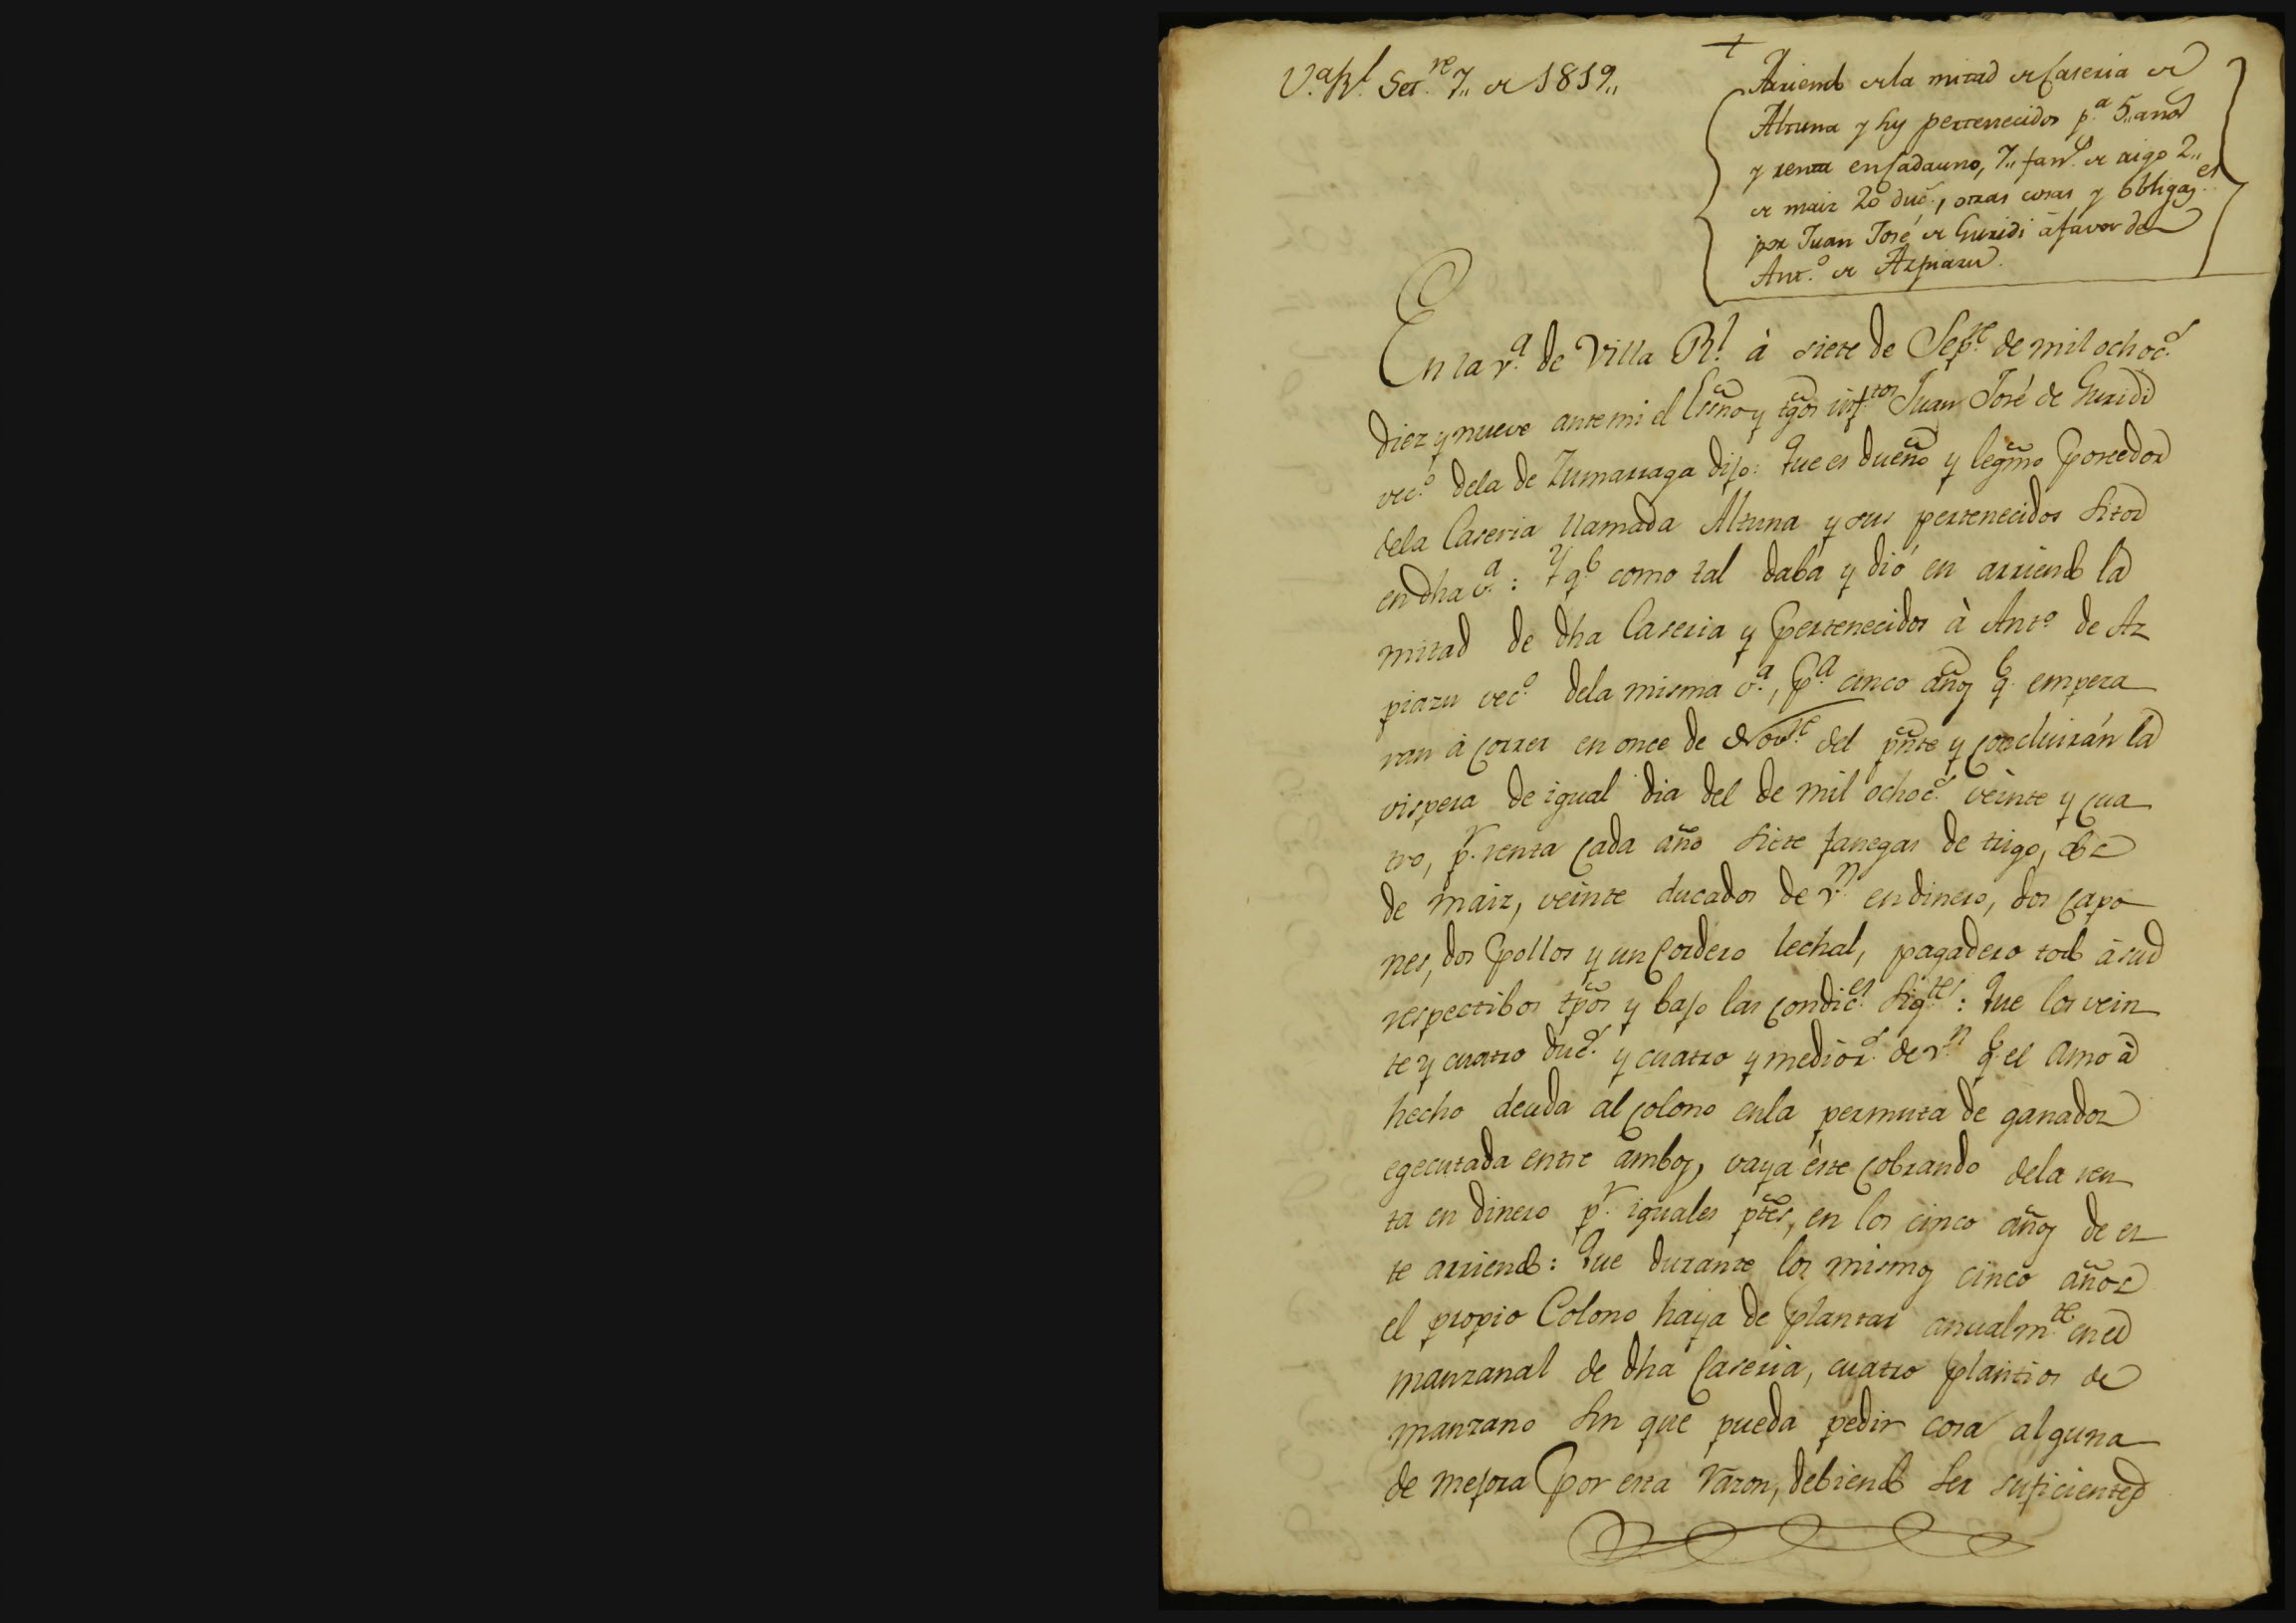 V.ª R.l Set.re 7,, de 1819,,
+
Arriendo de la mitad de Caseria de
Altuna y sus pertenecidos p.ª 5,, anos
y renta en Cada uno, 7,, fan.s de trigo 2,,
de maiz 20 duc.s, otras cosas y obligaz.es
por Juan José de Guridi à favor de
Ant.º de Azpiazu.
En la v.ª de Villa R.l à siete de Sep.re de mil ochoc.s
diez y nueve ante mi el Essno y tgos inf.tos Juan José de Guridi
vec.º dela de Zumarraga dijo: Que es dueño y legmo Poseedor
dela Caseria llamada Altuna y sus pertenecidos sitos
en dha v.ª: Y q.e como tal daba y dió en arriendo la
mitad de dha Caseria y Pertenecidos à Ant.º de Az
piazu vec.º dela misma v.ª, P.ª cinco años q.e empeza
ran à correr en once de Nov.re del pñte y concluirán la
vispera de igual dia del de mil ochoc.s veinte y cua
tro, p.r renta cada año siete fanegas de trigo, dos
de maiz, veinte ducados de v.n en dinero, dos capo
nes, dos Pollos y un Cordero lechal, pagadero todo à sus
respectibos tpos y bajo las condic.es sig.tes: Que los vein
te y cuatro duc.s y cuatro y medio r.s de v.n q.e el Amo à
hecho deuda al colono en la permuta de ganados
egecutada entre ambos, vaya éste cobrando dela ren
ta en dinero p.r iguales ptes, en los cinco años de es
te arriendo: Que durante los mismos cinco años
el propio Colono haya de Plantar anualm.te en el
manzanal de dha Caseria, cuatro Plantios de
manzano sin que pueda pedir cosa alguna
de mejora Por esta razon, debiendo ser suficientes